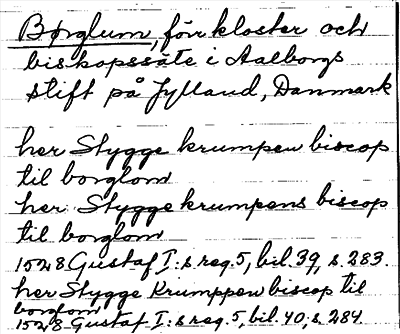 Børglum, förr kloster och
biskopssäte i Aalborgs
stift på Jylland, Danmark
her Stygge krumpen biscop
til borglom
her Stygge krumpens biscop
til borglom
1528 Gustaf I:s reg. 5, bil. 39, s. 283.
her Stygge Krumppen biscop til
borglom
1528 Gustaf I:s reg. 5, bil. 40, s. 284.